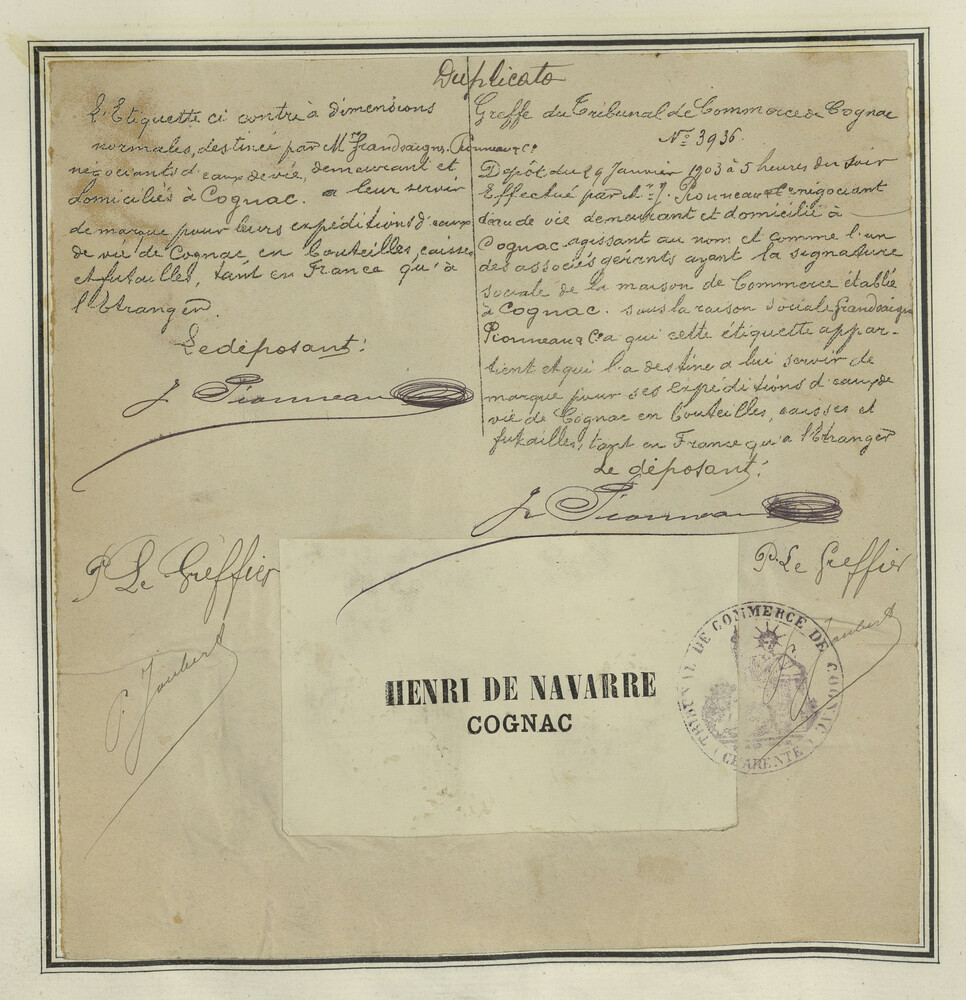 Duplicata
L'Etiquette ci contre à dimensions
normales, destinée par Mrs Grandsaigne, Pionneau & Co
négociants d'eaux de vie, demeurant et
domiciliés à Cognac. a leur servir
de marque pour leurs expéditions d'eaux
de vie de Cognac, en bouteilles, caisses
et futailles, tant en France qu'à
l'Etranger.
Le déposant:
J Pionneau
P Le Greffier
C. Joubert
Greffe du Tribunal de Commerce de Cognac
No 3936.
Dépôt du 29 Janvier 1903 à 5 heures du soir
Effectué par Mr J. Pionneau & Ce négociant
d'eau de vie demeurant et domicilié à
Cognac, agissant au nom et comme l'un
des associés gérants ayant la signature
sociale de la maison de Commerce établie
à Cognac. sous la raison sociale Grandsaigne
Pionneau & Ce a qui cette étiquette appar-
tient et qui l'a destine a lui servir de
marque pour ses expéditions d'eaux de
vie de Cognac en bouteilles, caisses et
futailles, tant en France qu'a l'Etranger
Le déposant:
J Pionneau
P. Le Greffier
C. Joubert
HENRI DE NAVARRE
COGNAC
TRIBUNAL DE COMMERCE DE COGNAC
(CHARENTE)